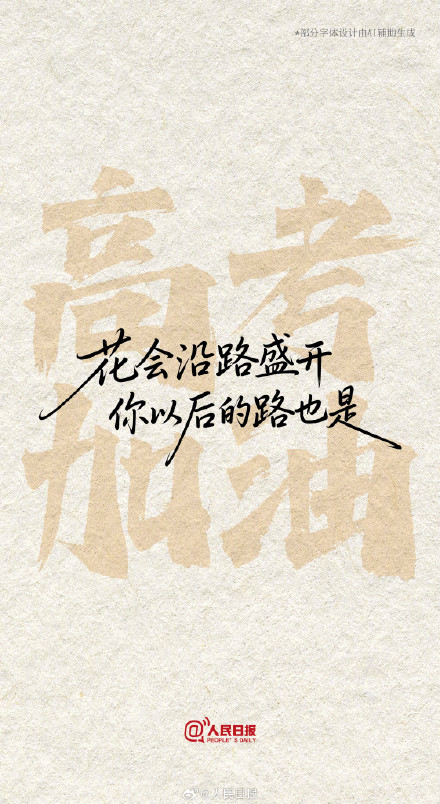 *部分字体设计由AI辅助生成
高考
加油
花会沿路盛开
你以后的路也是
@人民日报
PEOPLE'S DAILY
@人民日报